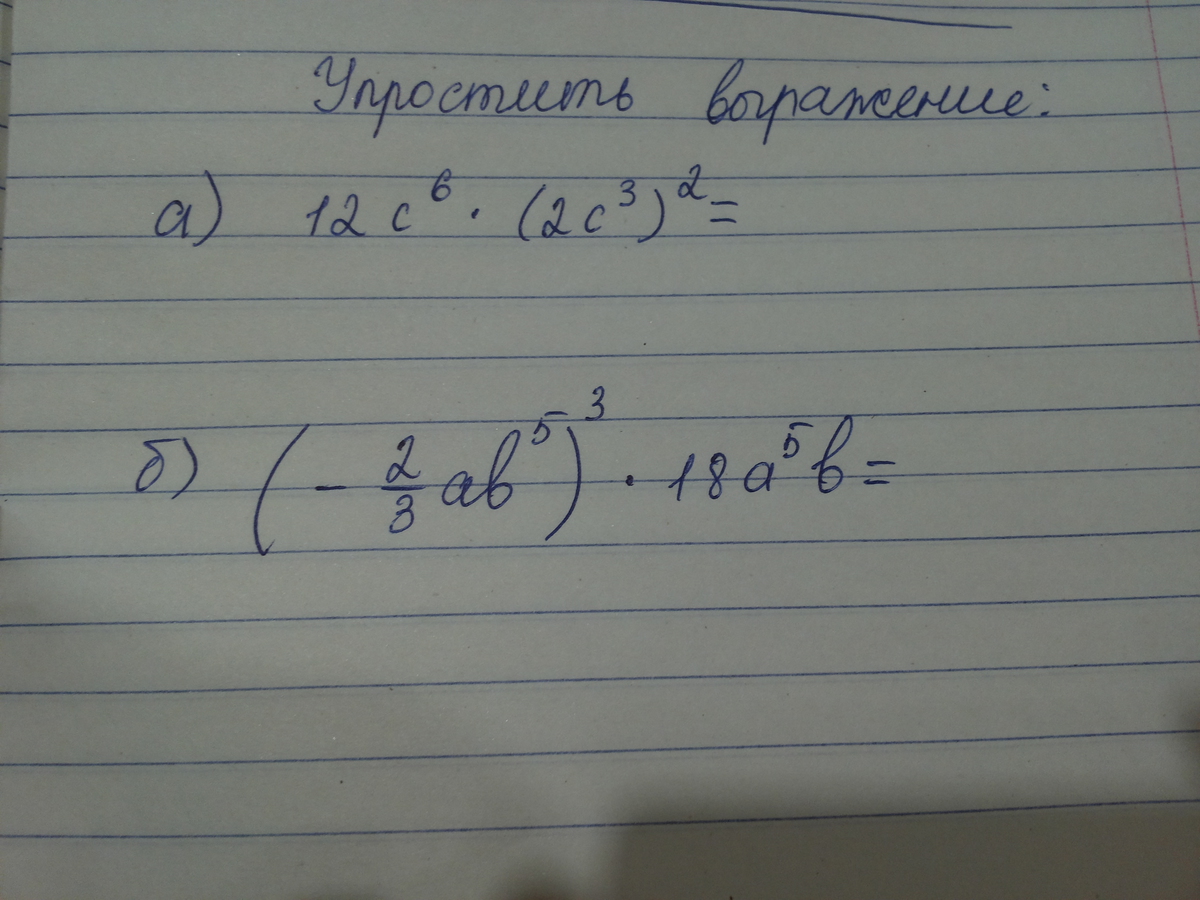 Упростить выражение:
а) 12c⁶ · (2c³)² =
б) (- 2/3 ab⁵)³ · 18a⁵b =